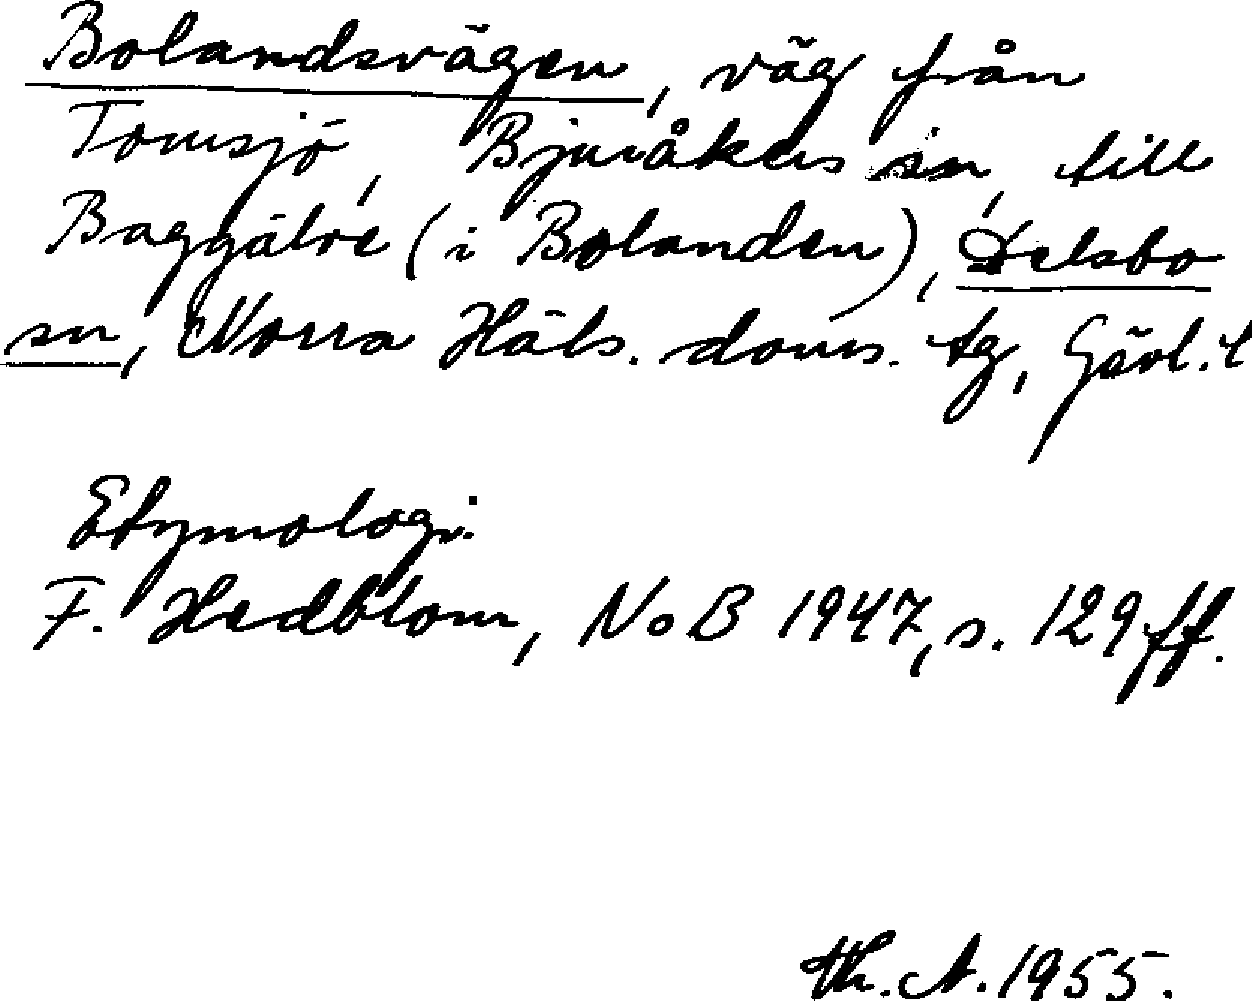 Bolandsvägen, väg från
Tomsjö, Bjuråkers sn, till
Baggälve (i Bolanden), Delsbo
sn, Norra Häls. doms. tg, Gävl. l
Etymologi.
F. Hedblom, NoB 1947, s. 129 ff.
Th. A. 1955.